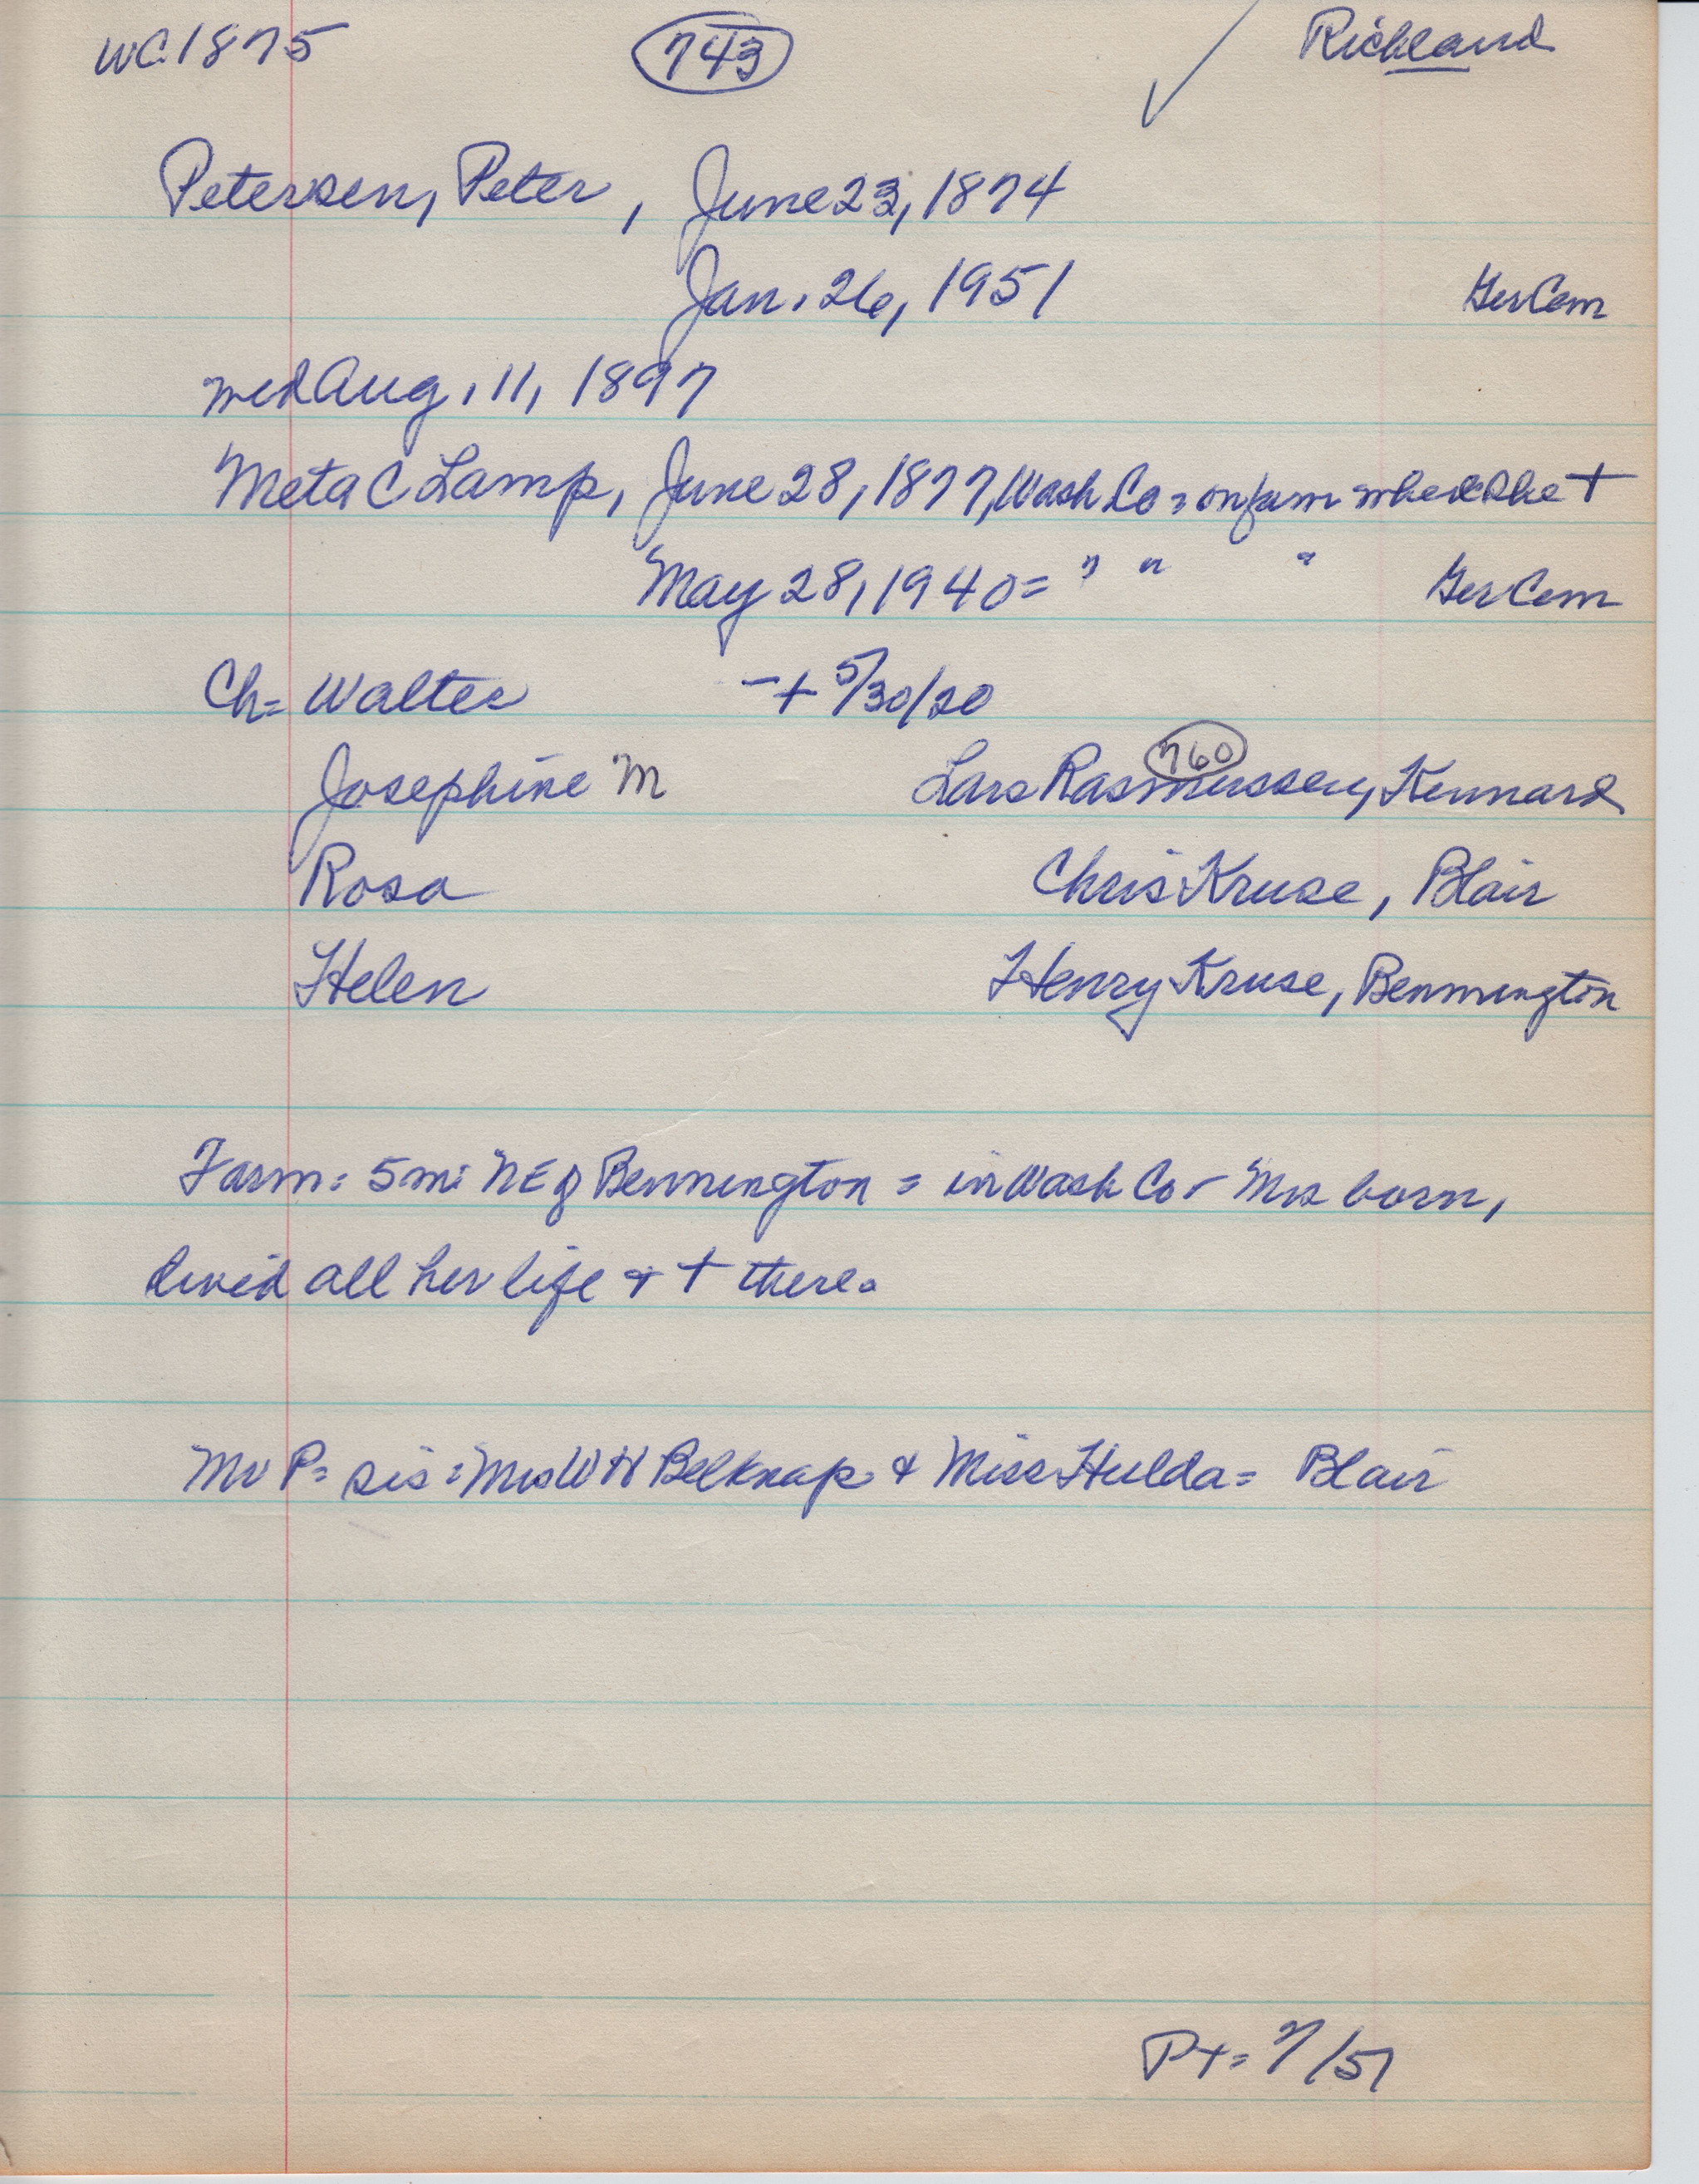 WC.1875 743 ✓ Richland
Petersen, Peter, June 23, 1874
Jan. 26, 1951 Ger Cem
med Aug. 11, 1897
Meta C Lamp, June 28, 1877, Wash Co = on farm where she +
May 28, 1940 = " " " Ger Cem
Ch = Walter - + 5/30/20
760
Josephine M Lars Rasmussen, Kennard
Rosa Chris Kruse, Blair
Helen Henry Kruse, Bennington
Farm: 5 mi NE of Bennington = in Wash Co - Mrs born,
lived all her life & + there.
Mr P = sis: Mrs W H Belknap & Miss Hulda = Blair
P+ = 7/51